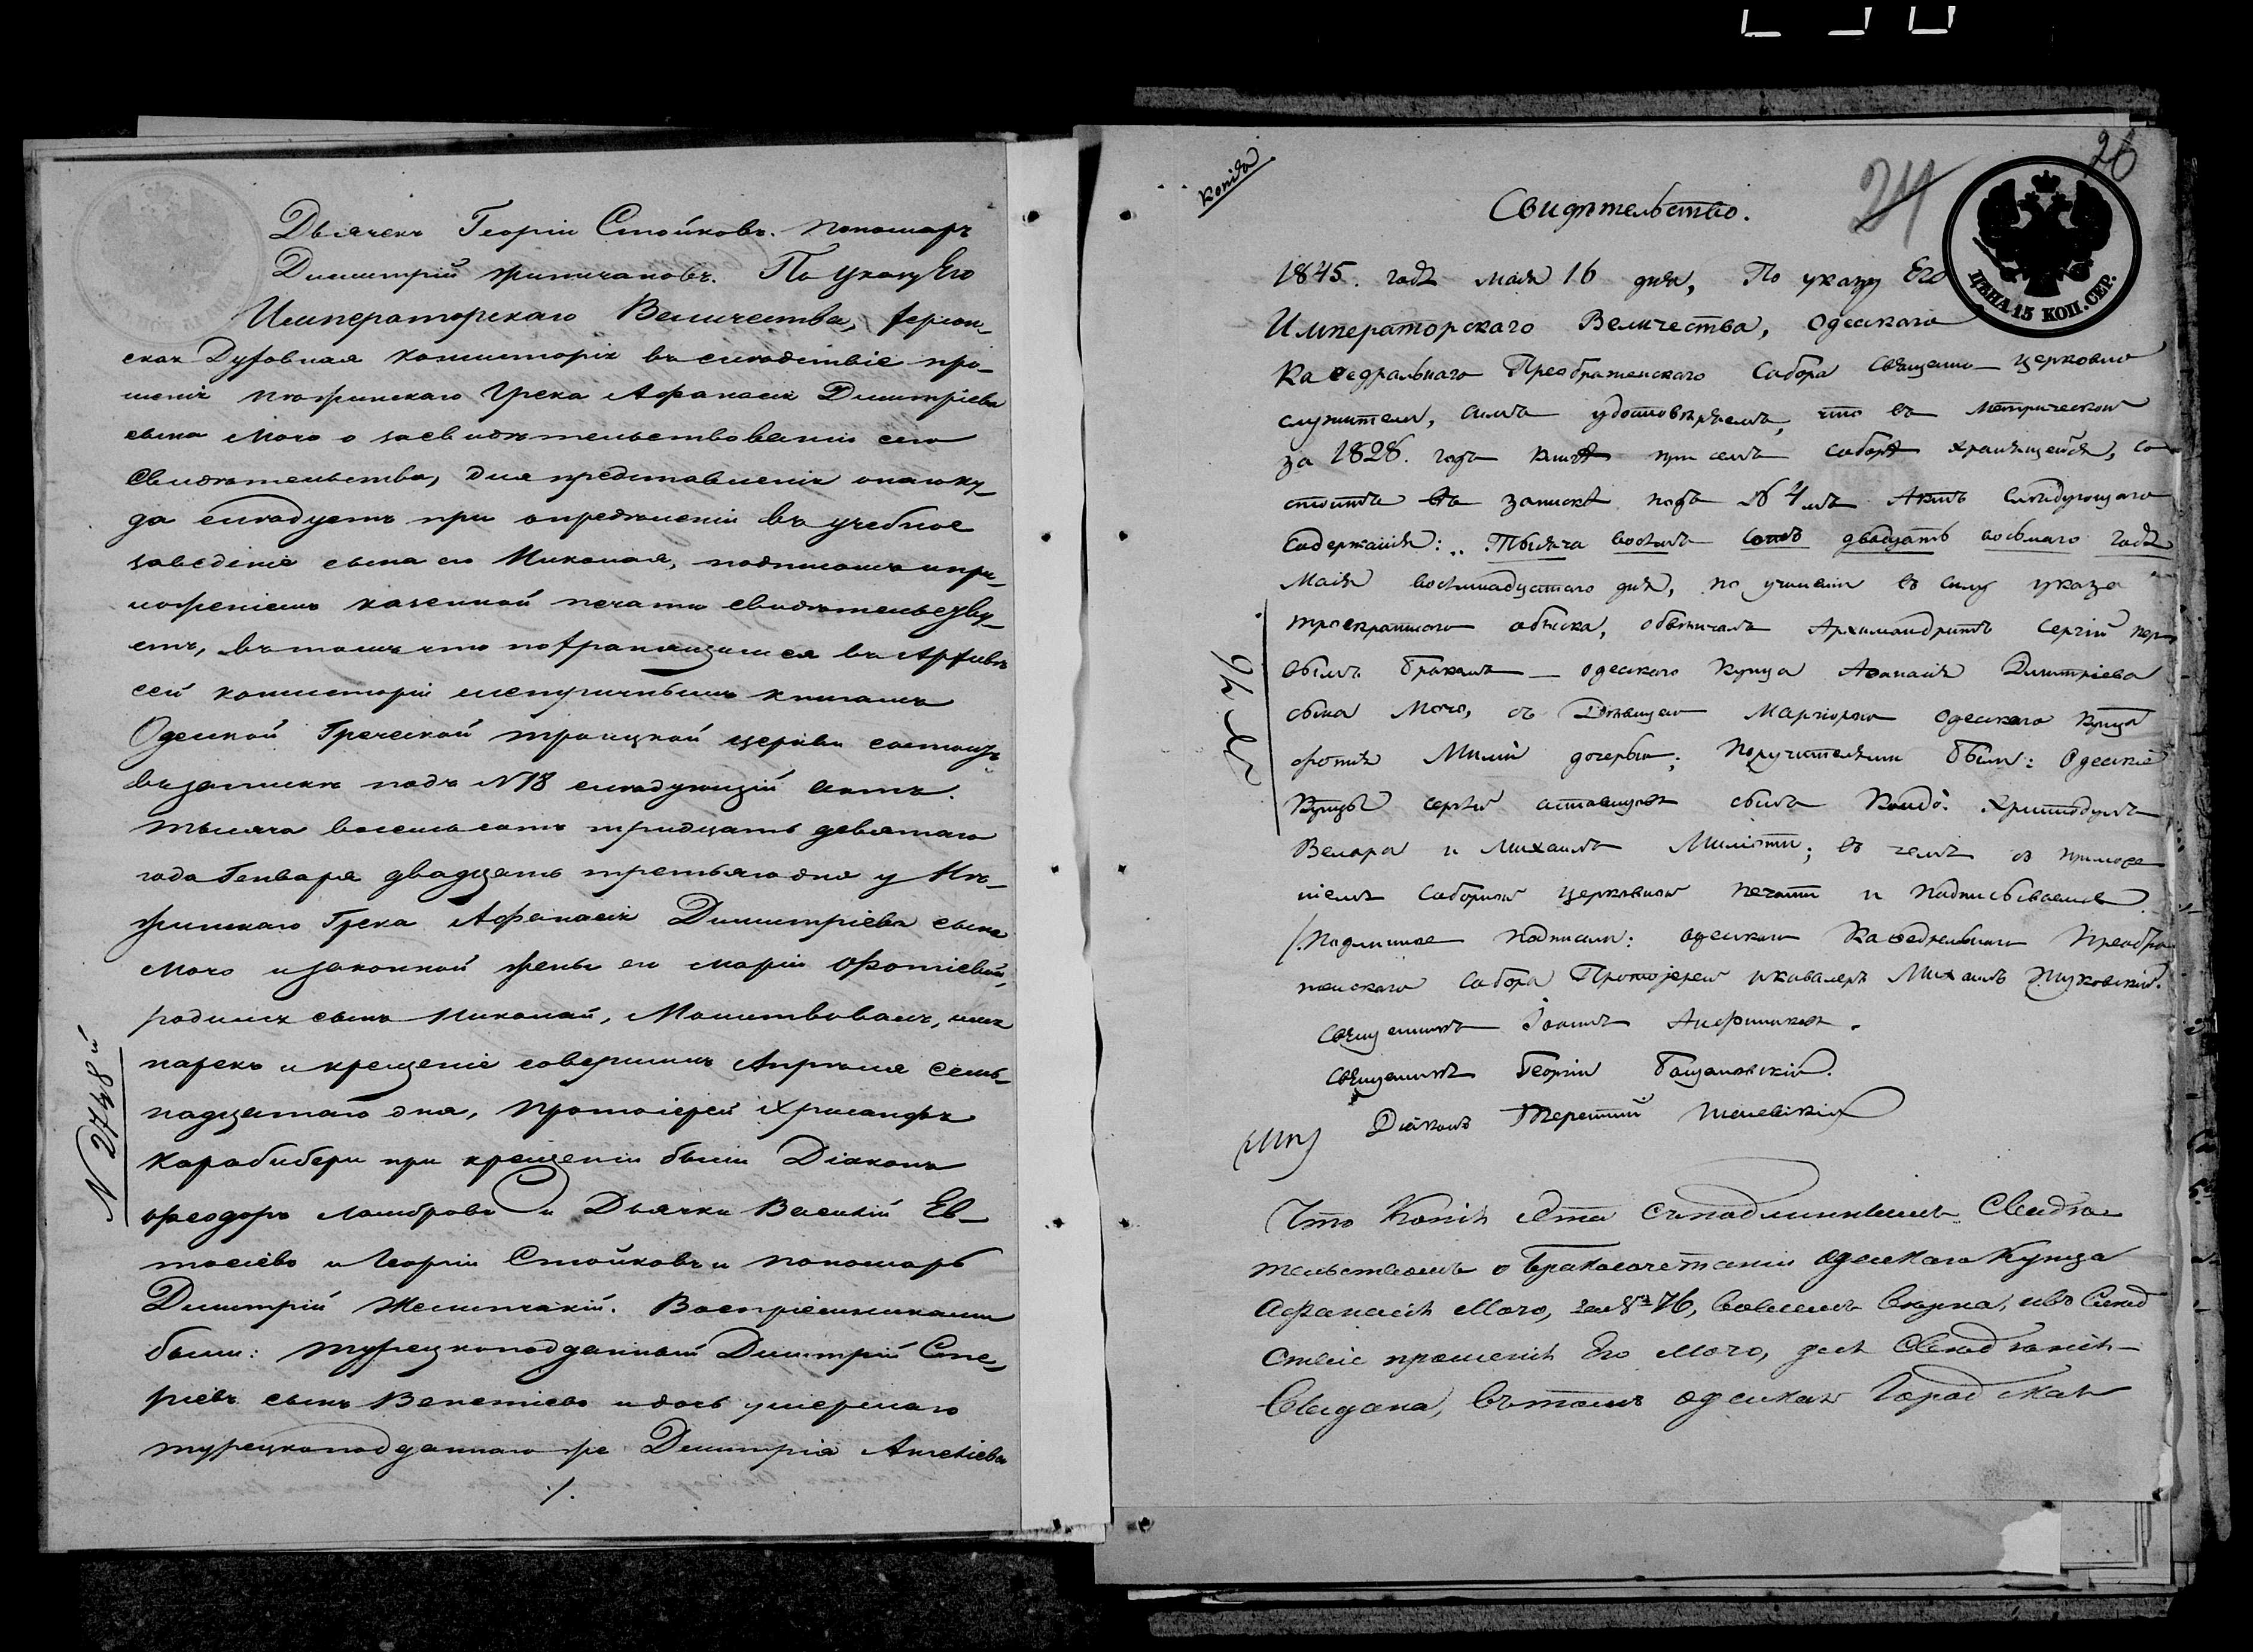 Дьячекъ Георгій Стойковъ. Пономарь
Димитрій Желипчаковъ. По указу Его
Императорскаго Величества, Херсон-
ская Духовная Консисторія въ слѣдствіе про-
шенія Нѣжинскаго Грека Афанасія Димитріева
сына Мочо о засвидѣтельствованіи сего
свидѣтельства, для представленія онаго ку-
да слѣдуетъ при опредѣленіи въ учебное
заведеніе сына его Николая, подписомъ и при-
ложеніемъ казенной печати свидѣтельству-
етъ, въ томъ что по хранящимся въ Архивѣ
сей Консисторіи метричнымъ книгамъ
Одесской Греческой Троицкой церкви состоитъ
въ запискѣ подъ N 18 слѣдующій актъ.
Тысяча восемь сотъ тридцать девятаго
года Генваря двадцать третьяго дня у Нѣ-
жинскаго Грека Афанасія Димитріева сына
Мочо и законной жены его Маріи Фотіевой,
родился сынъ Николай, Молитвовалъ, имя
нарекъ и крещеніе совершилъ Апрѣля семь-
надцатаго дня, Протоіерей Хрисанфъ
Карабибери при крещеніи были Діаконъ
Феодоръ Ламбровъ и Дьячки Василій Ев-
тасіевъ и Георгій Стойковъ и пономарь
Димитрій Воспріемниками
были: турецкоподданный Димитрій Спе-
ріевъ сынъ Венетіевъ и дочь умершаго
турецкоподданнаго же Димитрія Алексіева
/.
N 2748й
Копія
24
26
Свидѣтельство.
ЦѢНА 15 КОП. СЕР.
1845. года Маія 16 дня, По указу Его
Императорскаго Величества, Одесскаго
Каѳедральнаго Преображенскаго Собора Священно-церковно
служители, симъ удостовѣряемъ, что въ метрической
за 1828. годъ книгѣ при семъ соборѣ хранящейся, со-
стоитъ въ запискѣ подъ № 4мъ Актъ слѣдующаго
содержанія: Тысяча восемь сотъ двадцать восьмаго года
Маія восемнадцатаго дня, по учиненіи въ силу указа
троекратнаго обыска, обвѣнчалъ Архимандритъ Сергій пер-
вымъ бракомъ – Одесскаго Купца Аѳанасія Димитріева
сына Мочо, съ Дѣвицею Маріорою Одесскаго Купца
Фотія Мили дочерью; Поручителями были: Одесскіе
Купцы Сергѣй сынъ Христодулъ
Велара и Михаилъ Милоти; въ чемъ съ приложе-
ніемъ Соборной церковной печати и подписываемся.
/. Подлинное подписали: Одесскаго Каѳедральнаго Преобра-
женскаго Собора Протоіерей и кавалеръ Михаилъ
Священникъ Іоаннъ
Священникъ Георгій
Діаконъ Терентій
(М.п.)
№ 76.
Что копія эта съ подлиннымъ свидѣ-
тельствомъ о бракосочетаніи Одесскаго Купца
Афанасія Мочо, за № 76, во всемъ вѣрна, и въ слѣд
ствіе прошенія его Мочо, для свидѣнія
выдана, въ томъ Одесская Городская